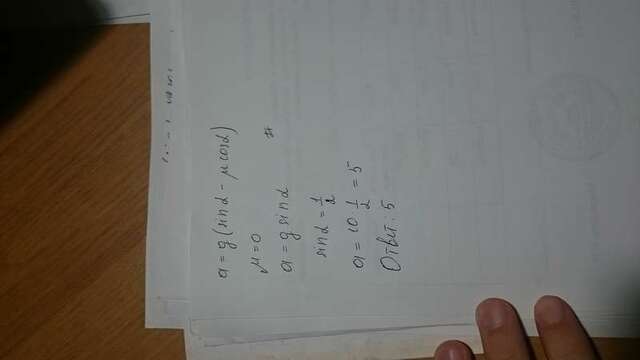 a = g(sinα - μcosα)
μ = 0
a = g sinα
sinα = 1/2
a = 10 · 1/2 = 5
Ответ: 5